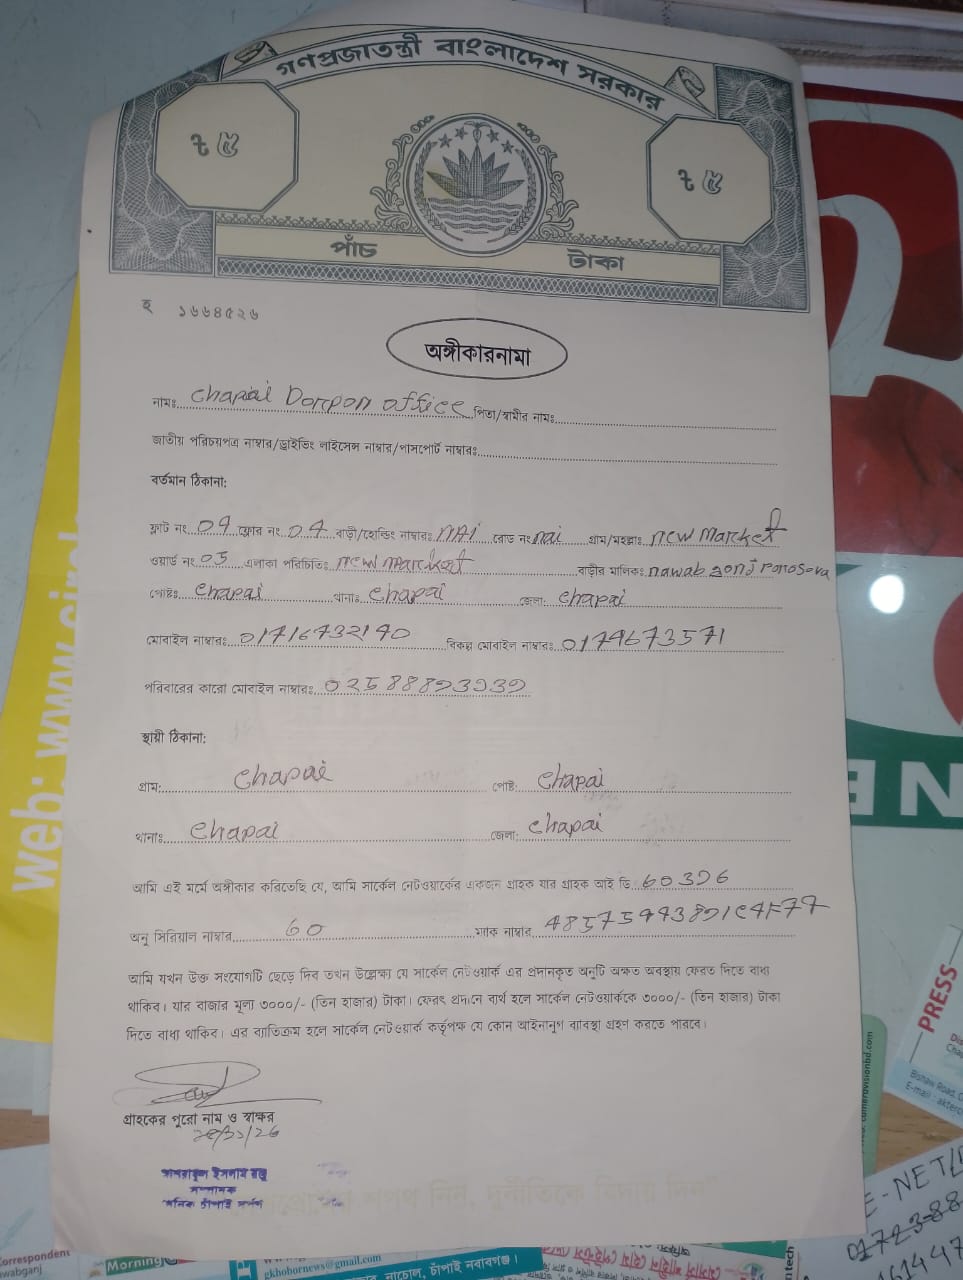 গণপ্রজাতন্ত্রী বাংলাদেশ সরকার
৳ ৫
৳ ৫
পাঁচ টাকা
হ ১৬৬৪৫২৬
অঙ্গীকারনামা
নামঃ chapai Dorpon office পিতা/স্বামীর নামঃ
জাতীয় পরিচয়পত্র নাম্বার/ড্রাইভিং লাইসেন্স নাম্বার/পাসপোর্ট নাম্বারঃ
বর্তমান ঠিকানা:
ফ্লাট নং 04 ফ্লোর নং 04 বাড়ী/হোল্ডিং নাম্বারঃ NAi রোড নং nai গ্রাম/মহল্লাঃ new Market
ওয়ার্ড নং 05 এলাকা পরিচিতিঃ new market বাড়ীর মালিকঃ nawab gonj
পোষ্টঃ chapai থানাঃ chapai জেলা: chapai
মোবাইল নাম্বারঃ বিকল্প মোবাইল নাম্বারঃ
পরিবারের কারো মোবাইল নাম্বারঃ
স্থায়ী ঠিকানা:
গ্রাম: chapai পোষ্ট: chapai
থানাঃ chapai জেলা: chapai
আমি এই মর্মে অঙ্গীকার করিতেছি যে, আমি সার্কেল নেটওয়ার্কের একজন গ্রাহক যার গ্রাহক আই ডি
অনু সিরিয়াল নাম্বার 60 ম্যাক নাম্বার
আমি যখন উক্ত সংযোগটি ছেড়ে দিব তখন উল্লেক্ষ্য যে সার্কেল নেটওয়ার্ক এর প্রদানকৃত অনুটি অক্ষত অবস্থায় ফেরত দিতে বাধ্য
থাকিব। যার বাজার মূল্য ৩০০০/- (তিন হাজার) টাকা। ফেরৎ প্রদানে ব্যর্থ হলে সার্কেল নেটওয়ার্ককে ৩০০০/- (তিন হাজার) টাকা
দিতে বাধ্য থাকিব। এর ব্যতিক্রম হলে সার্কেল নেটওয়ার্ক কর্তৃপক্ষ যে কোন আইনানুগ ব্যাবস্থা গ্রহণ করতে পারবে।
গ্রাহকের পুরো নাম ও স্বাক্ষর
সম্পাদক
দৈনিক চাঁপাই দর্পণ
web: www.
NE
PRESS
Bishaw Road,
E-mail - akter
E-NET/
01723-88
61447
orrespondent
wabganj
Morning
gkhobornews@gmail.com
নাচোল, চাঁপাই নবাবগঞ্জ।
tech